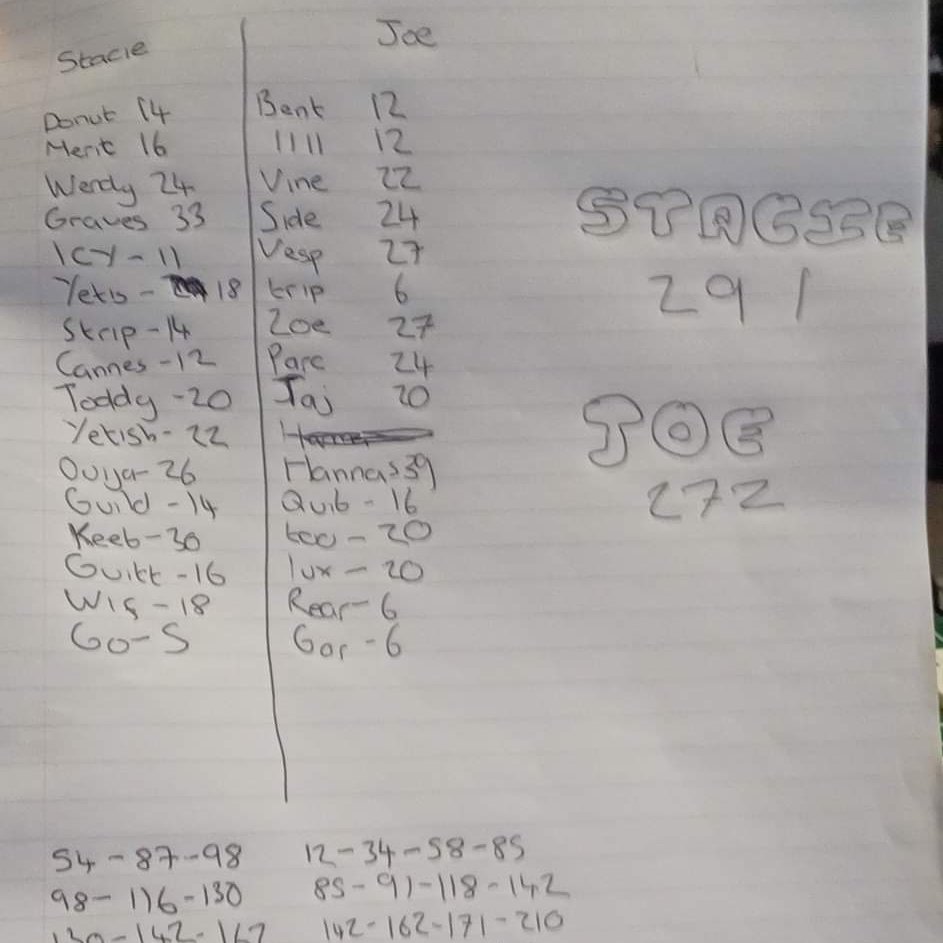 Stacie
Donut 14
Merit 16
Wendy 24
Graves 33
ICY - 11
Yetis - 18
Strip - 14
Cannes - 12
Toddy - 20
Yetish - 22
Ouija - 26
Guild - 14
Keeb - 30
Guilt - 16
Wig - 18
Go - 5
Joe
Bent 12
1111 12
Vine 22
Side 24
Vesp 27
trip 6
Zoe 27
Parc 24
Taj 20
Hannas 39
Quib - 16
- 20
lux - 20
Rear - 6
Gor - 6
STACIE
291
JOE
272
54 - 87 - 98
98 - 116 - 130
130 - 142 - 162
12 - 34 - 58 - 85
85 - 91 - 118 - 142
142 - 162 - 171 - 210